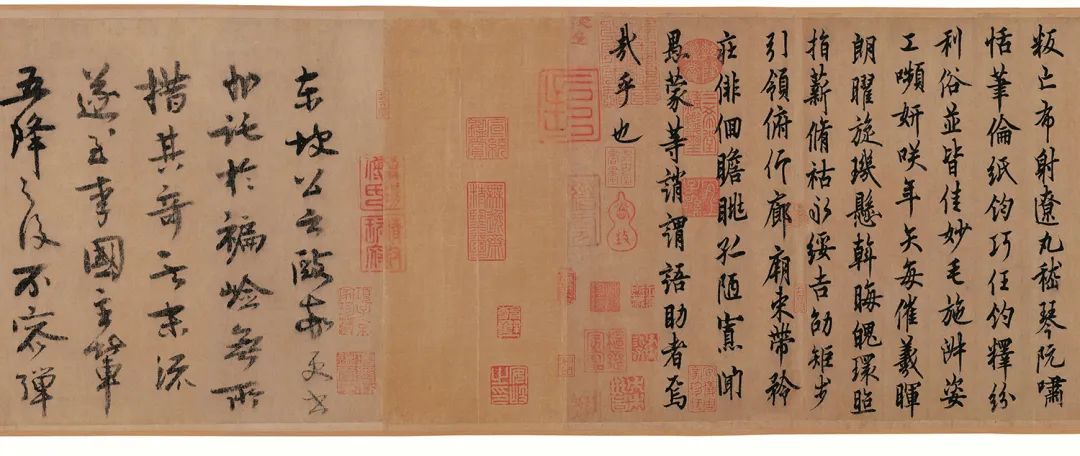 叛亡布射遼丸嵇琴阮嘯
恬筆倫紙鈞巧任釣釋紛
利俗並皆佳妙毛施淑姿
工嚬妍咲年矢每催羲暉
朗曜旋璣懸斡晦魄環照
指薪脩祜永綏吉劭矩步
引領俯仰廊廟束帶矜
莊徘徊瞻眺孤陋寡聞
愚蒙等誚謂語助者焉
哉乎也
東坡公云歐率更書
託於褊嶮無所
措其奇末流
遂至李國主輩
五降之後不容彈